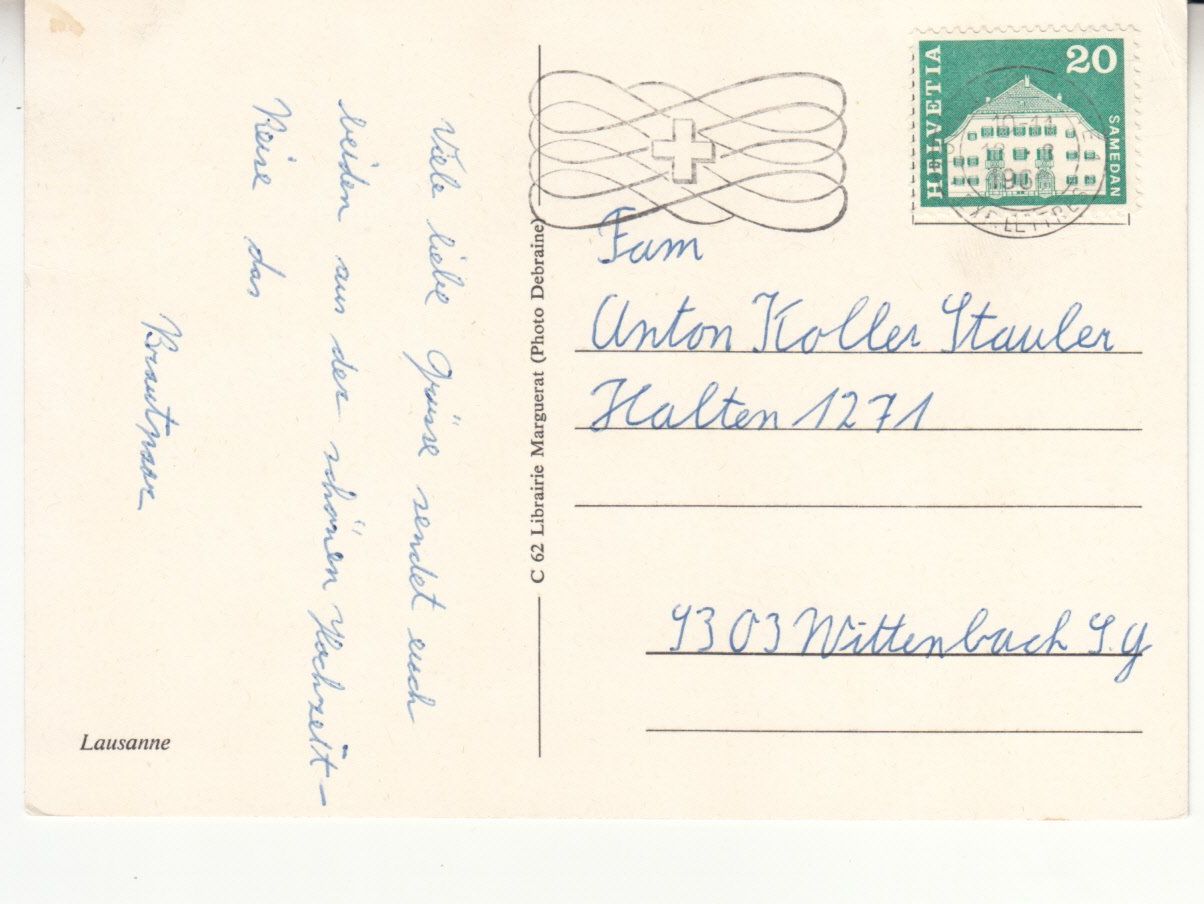 Viele liebe Grüsse sendet euch
beiden aus der schönen Hochzeit-
Reise das
Brautpaar
Lausanne
C 62 Librairie Marguerat (Photo Debraine)
HELVETIA
20
SAMEDAN
10-11
196
Fam
Anton Koller Stauler
Halten 1271
9303 Wittenbach S.g